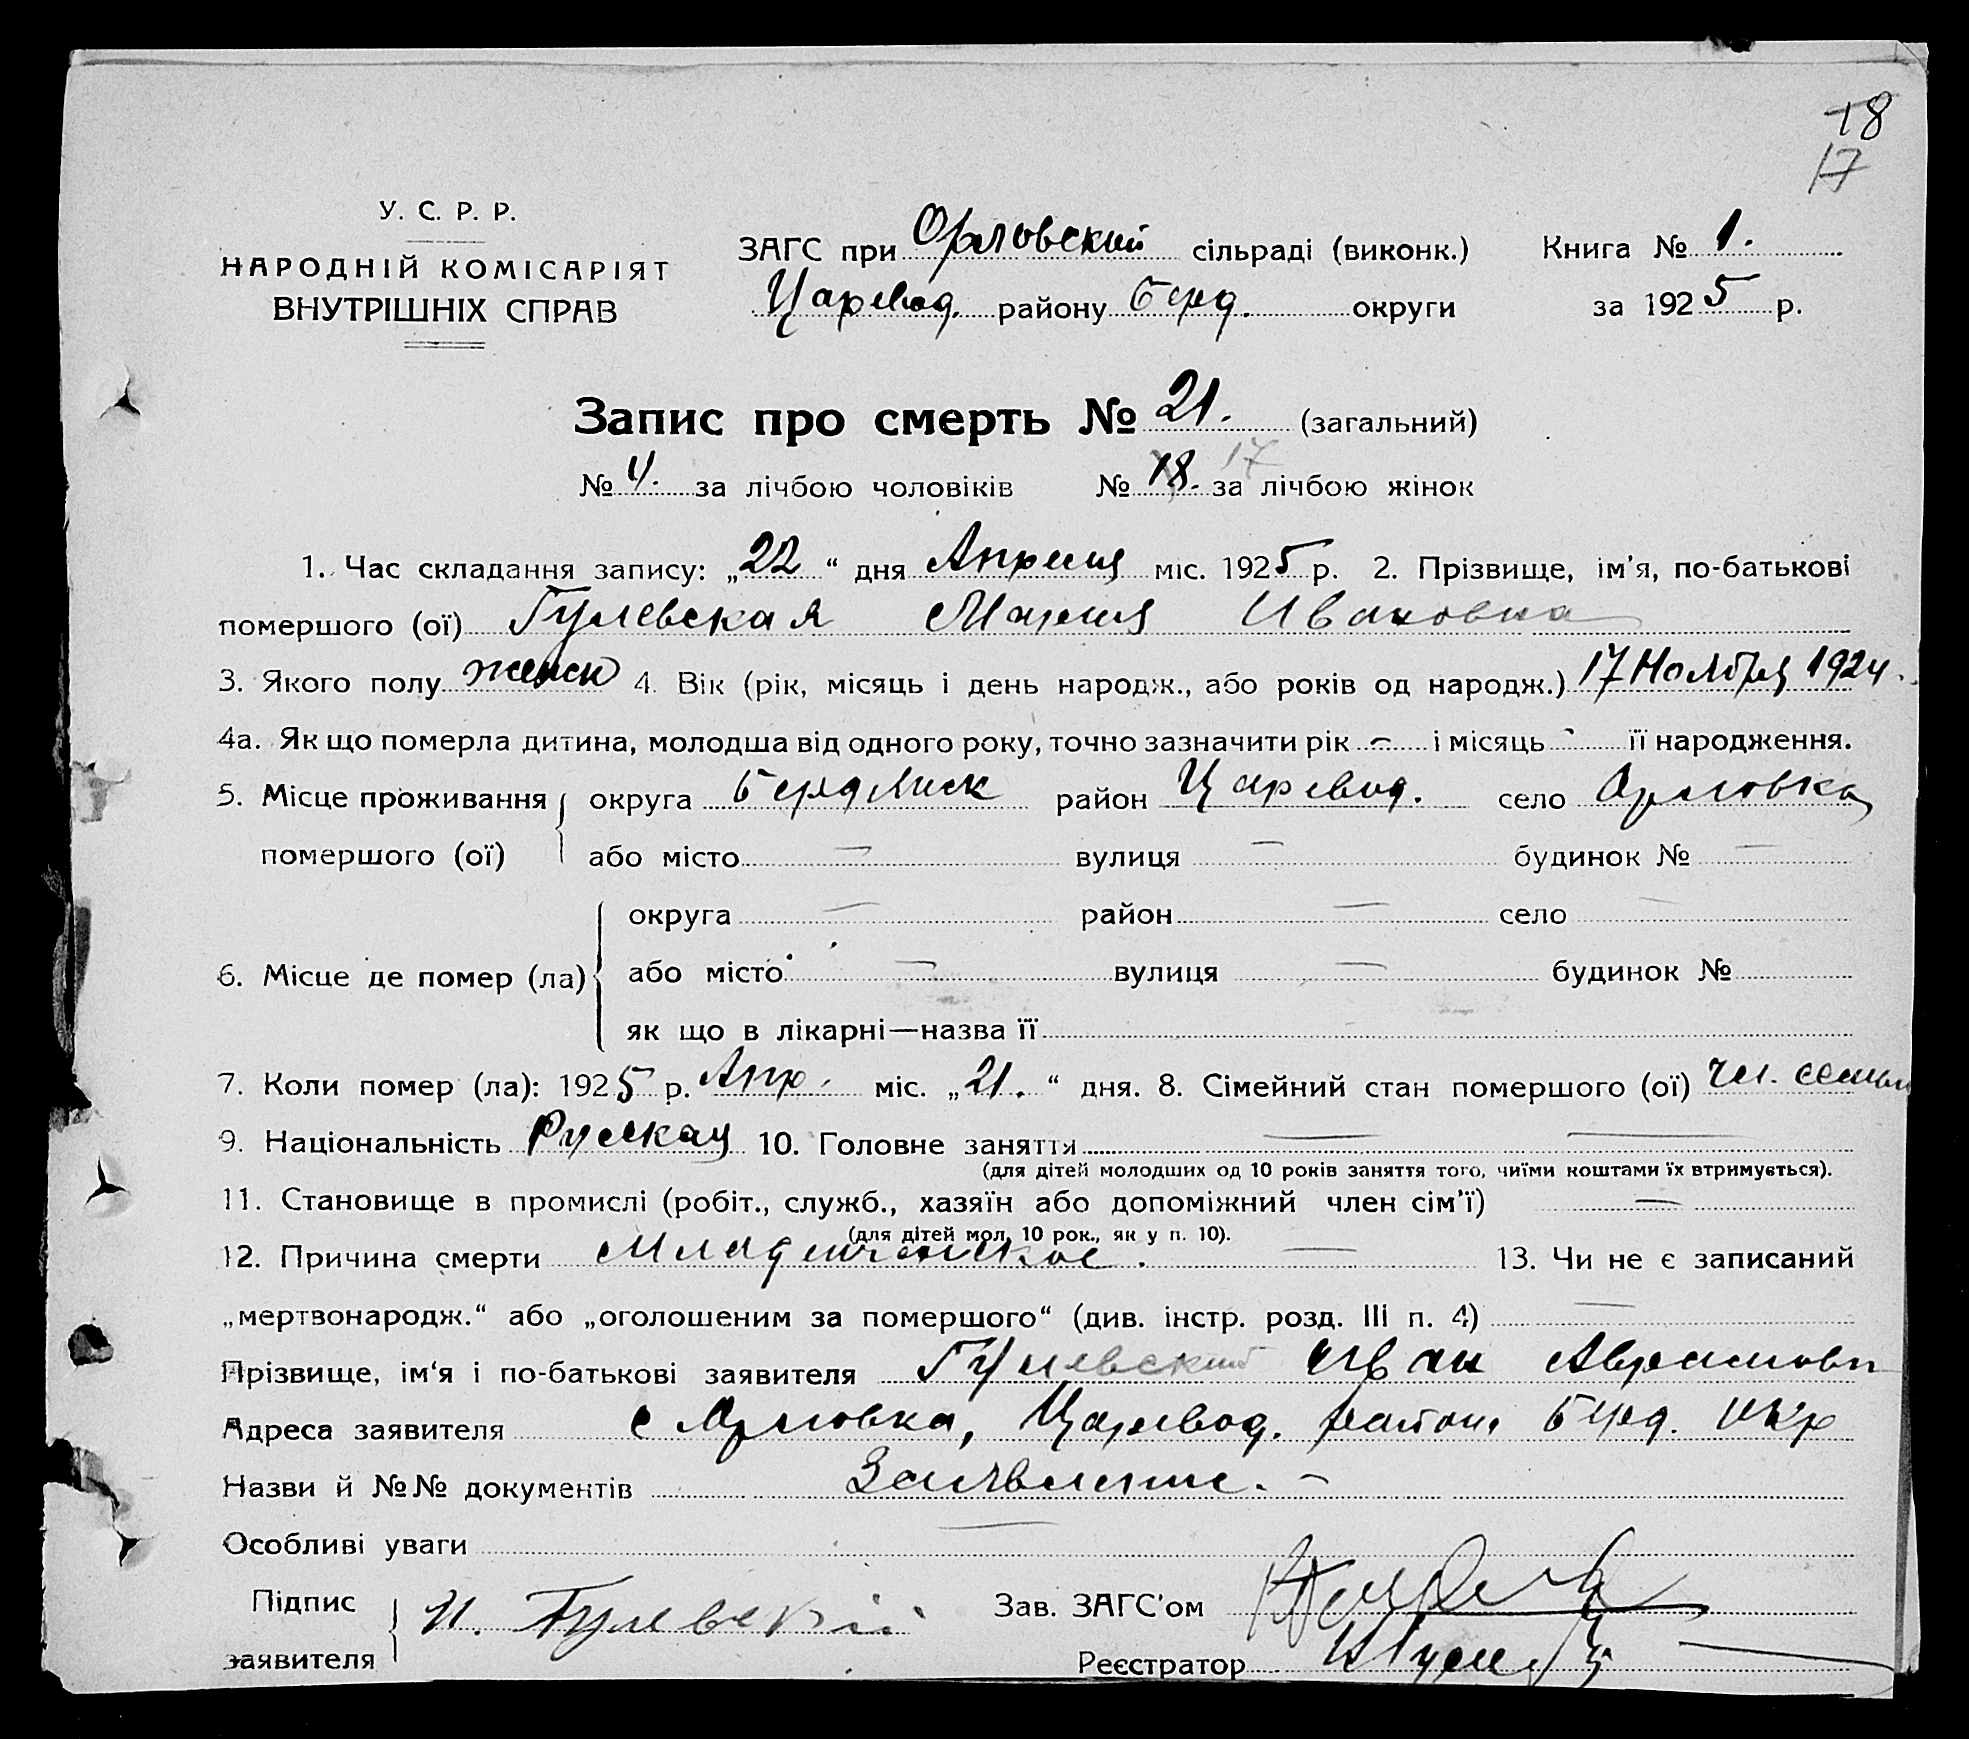 18
17
У. С. Р. Р.
НАРОДНІЙ КОМІСАРІЯТ
ВНУТРІШНІХ СПРАВ
ЗАГС при Орловский сільраді (виконк.) Книга № 1.
Царевод. району Берд. округи за 1925 р.
Запис про смерть № 21. (загальний)
№ 4. за лічбою чоловіків № 18. 17 за лічбою жінок
1. Час складання запису: „22“ дня Апреля міс. 1925 р. 2. Прізвище, ім'я, по-батькові
помершого (ої) Гулевская Мария Ивановна
3. Якого полу женск 4. Вік (рік, місяць і день народж., або років од народж.) 17 Ноября 1924.
4а. Як що померла дитина, молодша від одного року, точно зазначити рік – і місяць - її народження.
5. Місце проживання округа Бердянск район Царевод. село Орловка
помершого (ої) або місто — вулиця — будинок № —
округа — район — село —
6. Місце де помер (ла) або місто — вулиця — будинок №
як що в лікарні—назва її
7. Коли помер (ла): 1925 р. Апр. міс. „21.“ дня. 8. Сімейний стан помершого (ої) чл. семьи
9. Національність Русская 10. Головне заняття — —
(для дітей молодших од 10 років заняття того, чиїми коштами їх втримується).
11. Становище в промислі (робіт., служб., хазяїн або допоміжний член сім'ї) —
(для дітей мол. 10 рок., як у п. 10).
12. Причина смерти Младенческое. — 13. Чи не є записаний
„мертвонародж.“ або „оголошеним за помершого“ (див. інстр. розд. III п. 4) —
Прізвище, ім'я і по-батькові заявителя Гулевский Иван Аврамови
Адреса заявителя с Орловка, Царевод. район Берд. окр
Назви й №№ документів Заявление. –
Особливі уваги —
Підпис
заявителя И. Гулевскій
Зав. ЗАГС'ом
Реєстратор